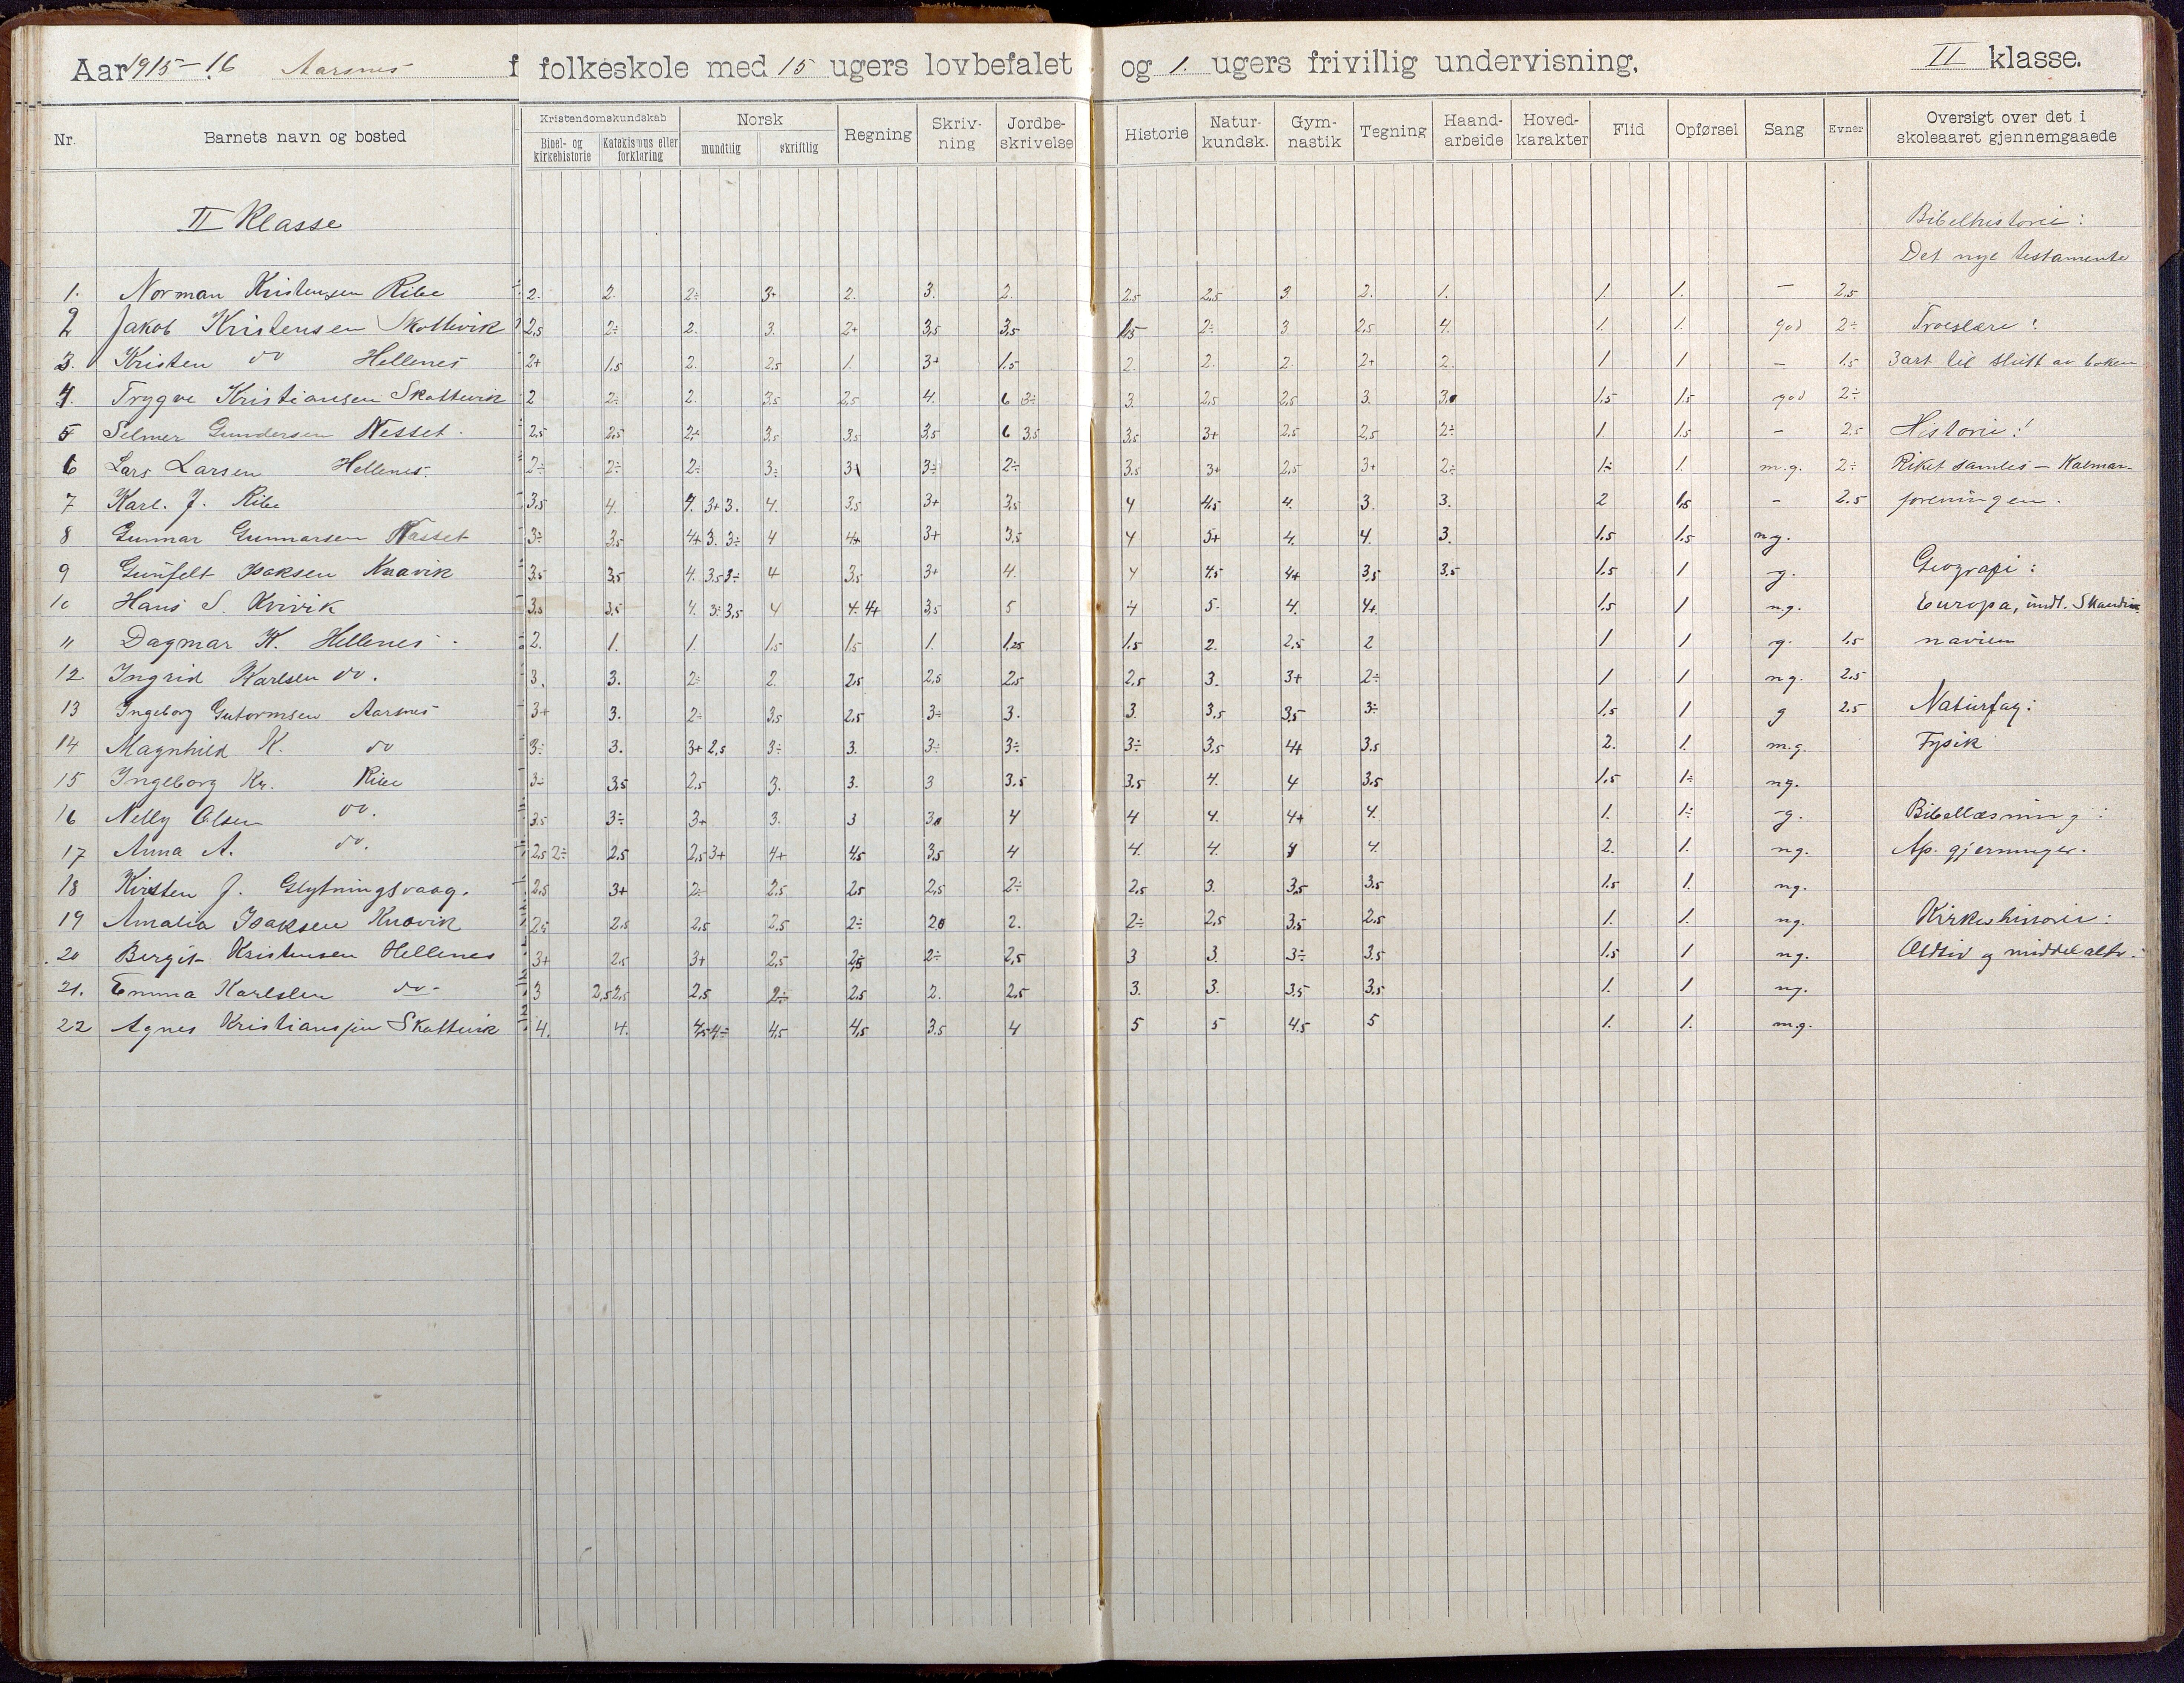 Aar 1915-16 Aarsnes f folkeskole med 15 ugers lovbefalet og 1. ugers frivillig undervisning. II klasse.
Nr. Barnets navn og bosted Kristendomskundskab Bibel- og kirkehistorie Katekismus eller forklaring Norsk mundtlig skriftlig Regning Skriv-ning Jordbe-skrivelse Historie Natur-kundsk. Gym-nastik Tegning Haand-arbeide Hoved-karakter Flid Opførsel Sang Evner Oversigt over det i skoleaaret gjennemgaaede
II Klasse Bibelhistorie:
Det nye testamente
1. Norman Kristensen Ribe 2. 2. 2÷ 3+ 2. 3. 2. 2,5 2,5 3. 2. 1. 1. 1. – 2,5
2 Jakob Kristensen Skottevik 2,5 2÷ 2. 3. 2+ 3,5 3,5 1,5 2÷ 3 2,5 4. 1. 1. god 2÷ Troeslære:
3. Kristen do Hellenes 2+ 1,5 2. 2,5 1. 3+ 1,5 2. 2. 2. 2+ 2. 1 1 – 1,5 3 art til slutt av boken
4. Trygve Kristiansen Skottevik 2 2÷ 2. 3,5 2,5 4. 6 3÷ 3. 2,5 2,5 3. 3. 1,5 1,5 god 2÷
5 Selmer Gundersen Nesset. 2,5 2,5 2÷ 3,5 3,5 3,5 6 3,5 3,5 3+ 2,5 2,5 2÷ 1. 1,5 – 2,5 Historie:
6 Lars Larsen Hellenes. 2÷ 2÷ 2÷ 3÷ 3÷ 2÷ 3,5 3+ 2,5 3+ 2÷ 1÷ 1. m.g. 2÷ Riket samles – Kalmar-
7 Karl. J. Ribe 3,5 4. 4. 3+ 3. 4. 3,5 3+ 3,5 4 4,5 4. 3. 3. 2 1,5 – 2.5 foreningen.
8 Gunnar Gunnarsen Nasset 3÷ 3,5 4+ 3. 3÷ 4 4+ 3+ 3,5 4 5+ 4. 4. 3. 1,5 1.5 ng.
9 Gunfelt Isaksen Knavik 3,5 3,5 4. 3,5 3÷ 4 3,5 3+ 4. 4 4.5 4+ 3,5 3,5 1,5 1 g. Geografi:
10 Hans S. Kvivik 3,5 3,5 4. 3÷ 3,5 4 4÷ 4+ 3,5 5 4 5. 4. 4+ 1,5 1 ng. Europa, undt. Skandi-
11 Dagmar K. Hellenes 2. 1. 1. 1,5 1,5 1. 1,25 1,5 2. 2,5 2 1 1 g. 1,5 navien
12 Ingrid Karlsen do. 3. 3. 2÷ 2. 2,5 2,5 2,5 2,5 3. 3+ 2÷ 1 1 ng. 2,5
13 Ingeborg Gutormsen Aarsnes 3+ 3. 2÷ 3,5 2,5 3÷ 3. 3. 3,5 3,5 3÷ 1,5 1 g 2,5 Naturfag:
14 Magnhild K. do 3÷ 3. 3+ 2,5 3÷ 3. 3÷ 3÷ 3÷ 3,5 4+ 3,5 2. 1. m.g. Fysik
15 Ingeborg Kr. Ribe 3÷ 3,5 2,5 3. 3. 3 3.5 3,5 4. 4 3,5 1,5 1÷ ng.
16 Nelly Olsen do. 3.5 3÷ 3+ 3. 3 4 4 4. 4+ 4. 1. 1÷ g. Bibellæsning:
17 Anna A. do. 2,5 2÷ 2,5 2,5 3+ 4+ 4,5 3,5 4 4. 4. 4. 2. 1. ng. Ap. gjerninger.
18 Kirsten J. Glytningsvaag. 2,5 3+ 2÷ 2,5 2,5 2,5 2÷ 2,5 3. 3,5 3,5 1,5 1. ng.
19 Amalia Isaksen Knavik 2,5 2,5 2,5 2÷ 2. 2÷ 2,5 3,5 2,5 1. 1. ng. Kirkehistorie:
20 Bergit Kristensen Hellenes 3+ 2,5 3+ 2,5 2,5 2÷ 2,5 3 3. 3÷ 3,5 1,5 1 ng. Oldtid og middelalt.
21. Emma Karlsen do. 3 2,5 2,5 2,5 2÷ 2,5 2. 2,5 3. 3. 3,5 3,5 1. 1 ng.
22 Agnes Kristiansen Skottevik 4. 4. 4,5 4÷ 4,5 4,5 3.5 4 5 5 4.5 5 1. 1. m.g.